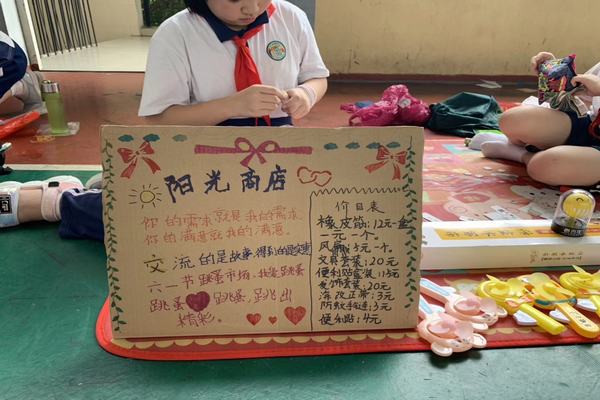 阳光商店
你的需求就是我的需求
你的满意就是我的满意。
交流的是故事,得到的是实惠
六一节跳蚤市场,我是跳蚤
跳蚤 跳蚤,跳出
精彩。
价目表
橡皮筋:12元一盒
一元一个。
风扇:5元一个。
文具套装:20元
便利贴套装:15元
发饰套装:20元
涂改正带:3元
防蚊手连:3元
便利贴:4元